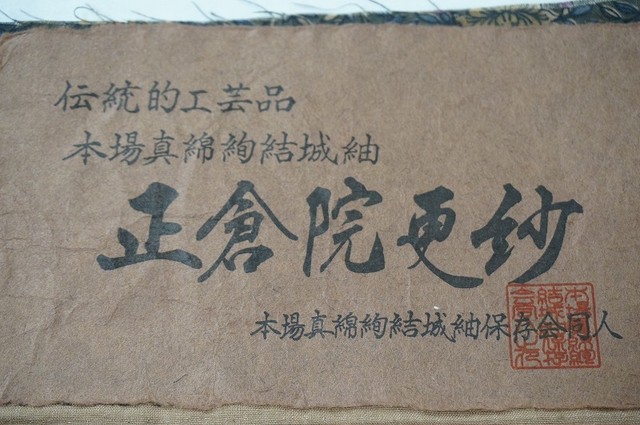 伝統的工芸品
本場真綿絢結城紬
正倉院更紗
本場真綿絢結城紬保存会同人